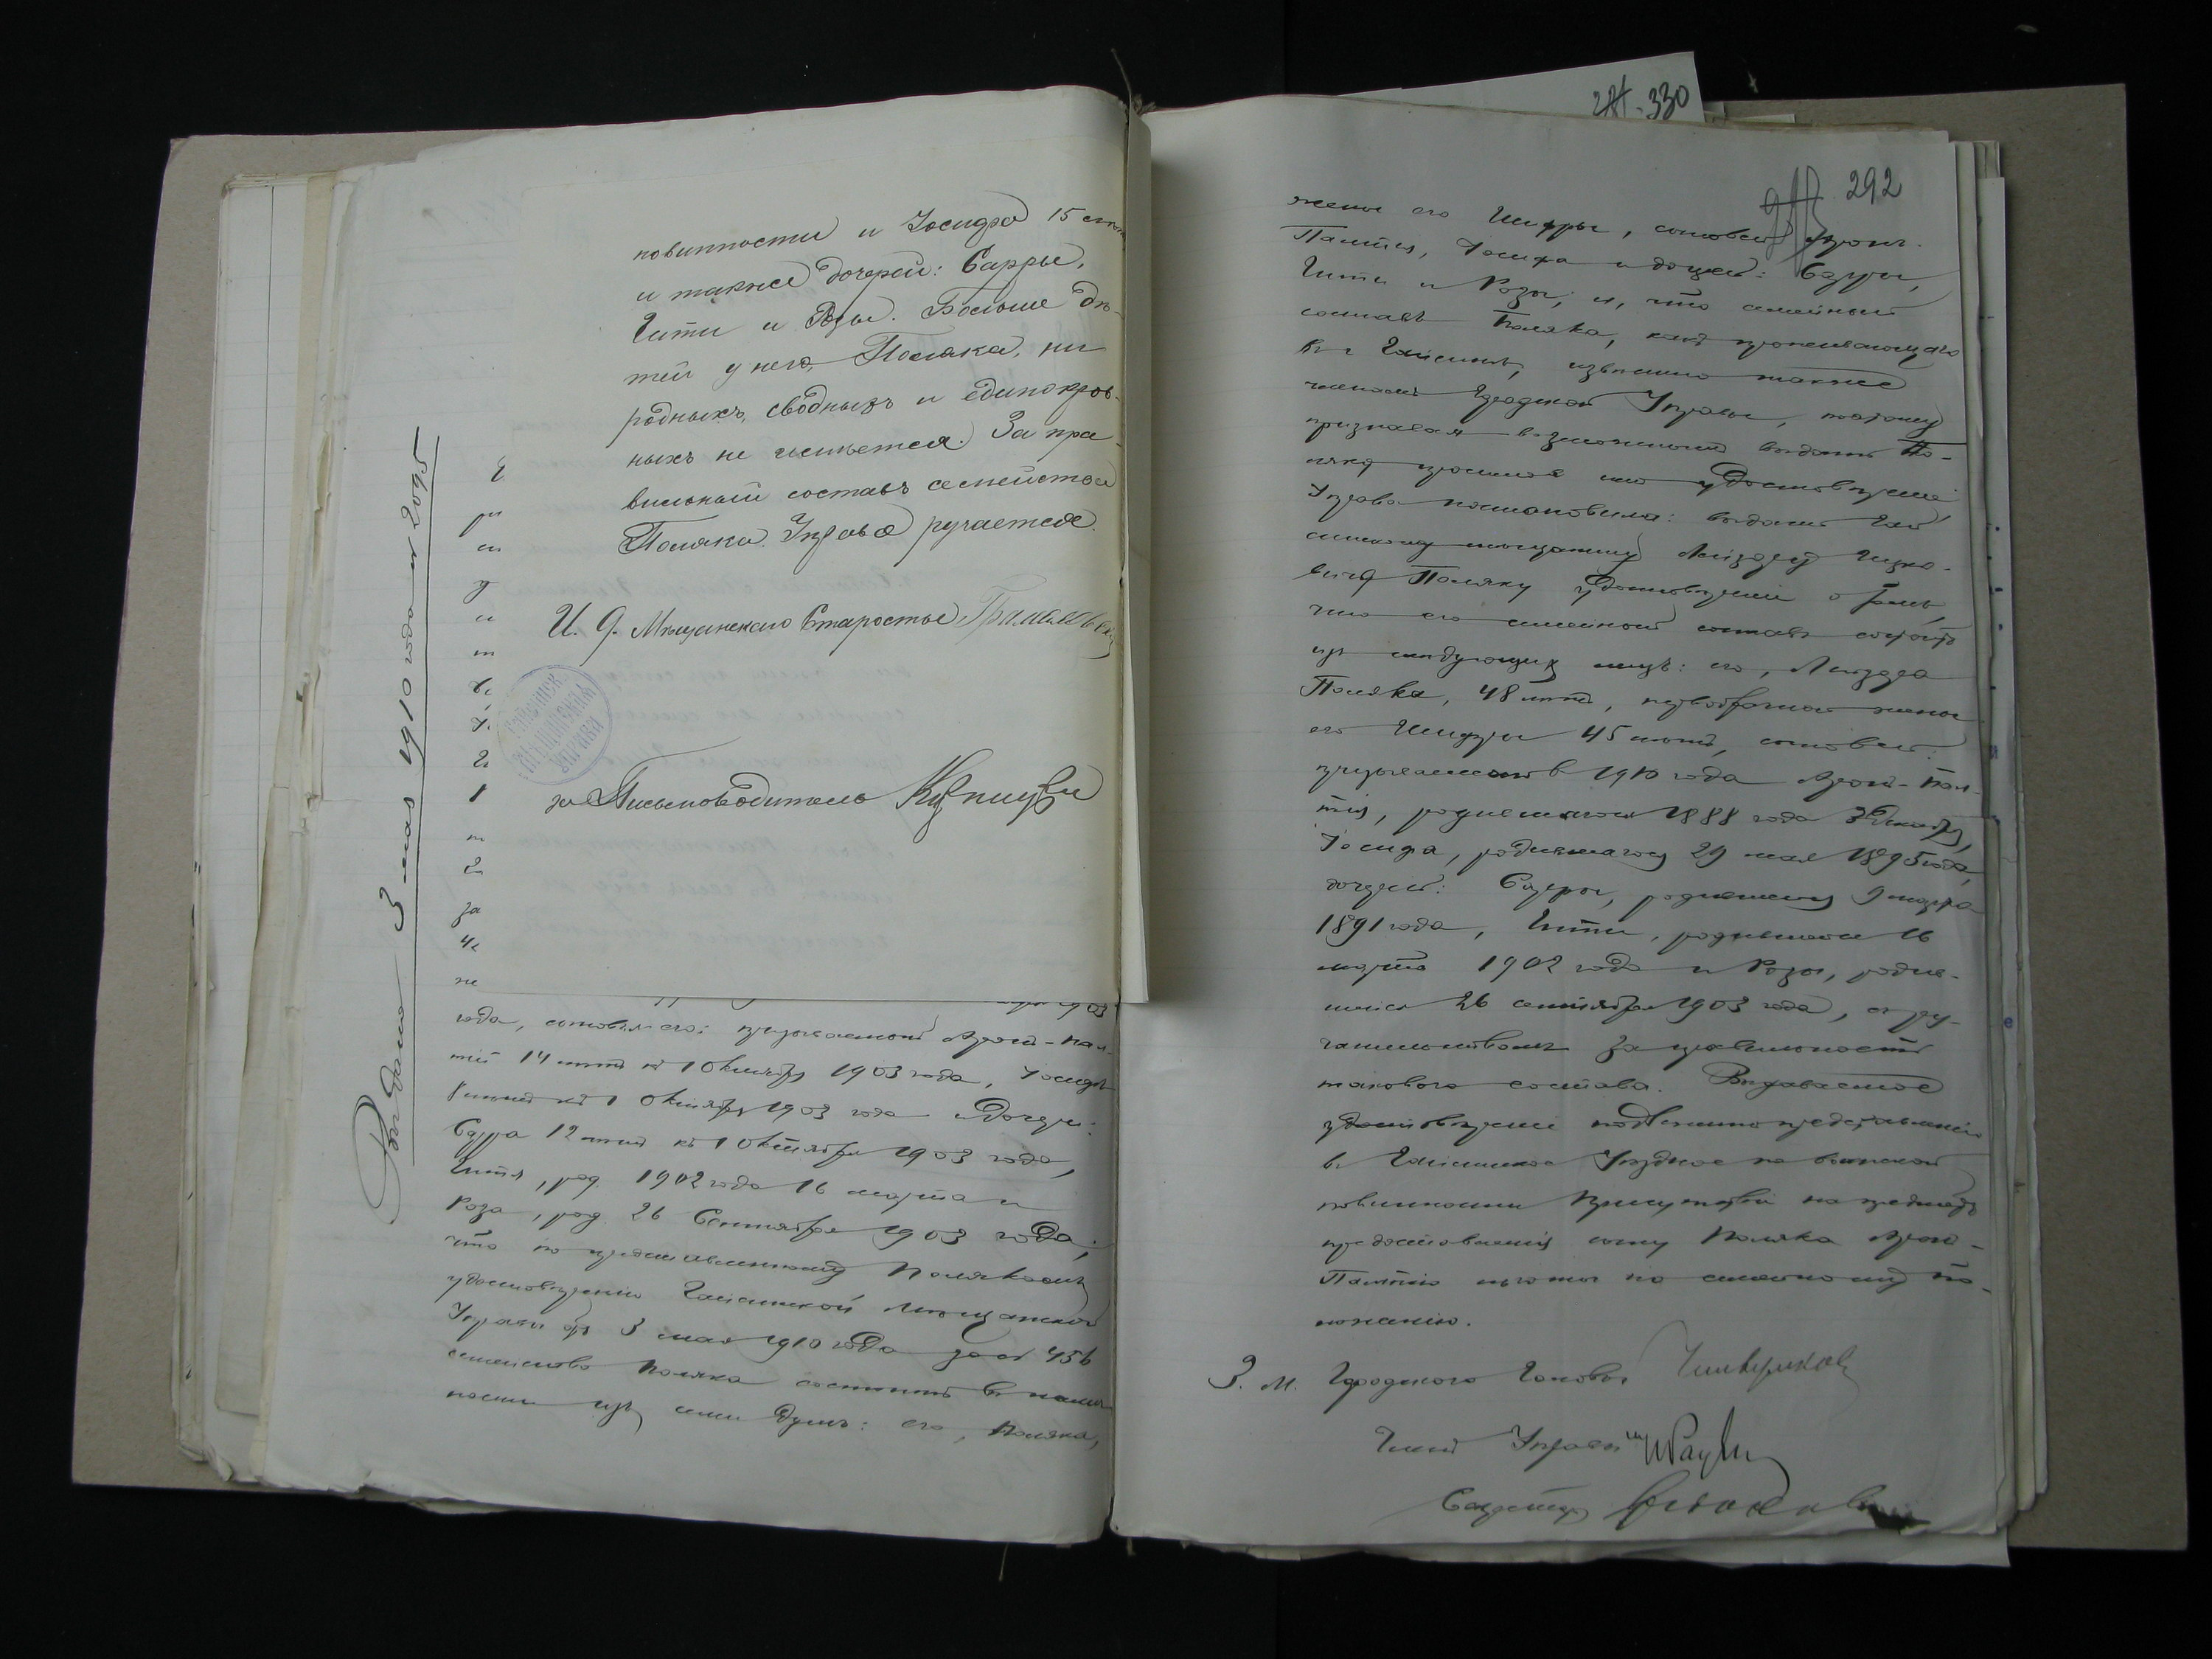 повинности и Іосифа 15 лѣтъ
и также дочерей: Сарры,
Гити и Розы. Больше дѣ-
тей у него, Поляка, ни
родныхъ, сводныхъ и единокров-
ныхъ не имѣется. За пра-
вильный составъ семейства
Поляка Управа ручается.
И. д. Мѣщанскаго Старосты
ГАЙСИНСК.
МѢЩАНСКАЯ
УПРАВА
за Письмоводитель
Выдано 3 мая 1910 года № 2095
1903
года, сыновья его: призываемый Арон-Пал-
тій 14 лѣтъ къ 1 Октября 1903 года, Іосифъ
8 лѣтъ къ 1 Октября 1903 года и дочери:
Сарра 12 лѣтъ къ 1 Октября 1903 года,
Гитя, род. 1902 года 16 марта и
Роза, род. 26 Сентября 1903 года;
что по представленному Полякомъ
удостовѣренію Гайсинской Мѣщанской
Управы отъ 3 мая 1910 года за № 456
семейство Поляка состоитъ в налич-
ности изъ семи душъ: его, Поляка,
281-330
292
жены его Шифры, сыновей Арон-
Палтія, Іосифа и дочерей: Сарры,
Гити и Розы, и, что семейный
составъ Поляка, какъ проживающаго
въ г. Гайсинѣ, извѣстно также
членамъ Городской Управы, поэтому
признавая возможнымъ выдать По-
ляку просимое имъ удостовѣреніе
Управа постановила: выдать Гай-
синскому мѣщанину Лейзеру Ицко-
вичу Поляку удостовѣреніе о томъ,
что его семейный составъ состоитъ
изъ слѣдующихъ лицъ: его, Лейзера
Поляка, 48 лѣтъ, первобрачной жены
его Шифры 45 лѣтъ, сыновей:
призываемаго въ 1910 года Арон-Пал-
тія, родившагося 1888 года 3 Декабря,
Іосифа, родившагося 29 мая 1895 года,
дочерей: Сарры, родившейся 9 марта
1891 года, Гити, родившейся 16
марта 1902 года и Розы, родив-
шейся 26 сентября 1903 года, съ ру-
чательствомъ за правильность
такового состава. Выдаваемое
удостовѣреніе подлежитъ представленію
въ Гайсинское Уѣздное по воинской
повинности Присутствіе на предметъ
предоставленія сыну Поляка Арон-
Палтію льготы по семейному по-
ложенію.
З. м. Городского Головы
Членъ Управы
Секретарь